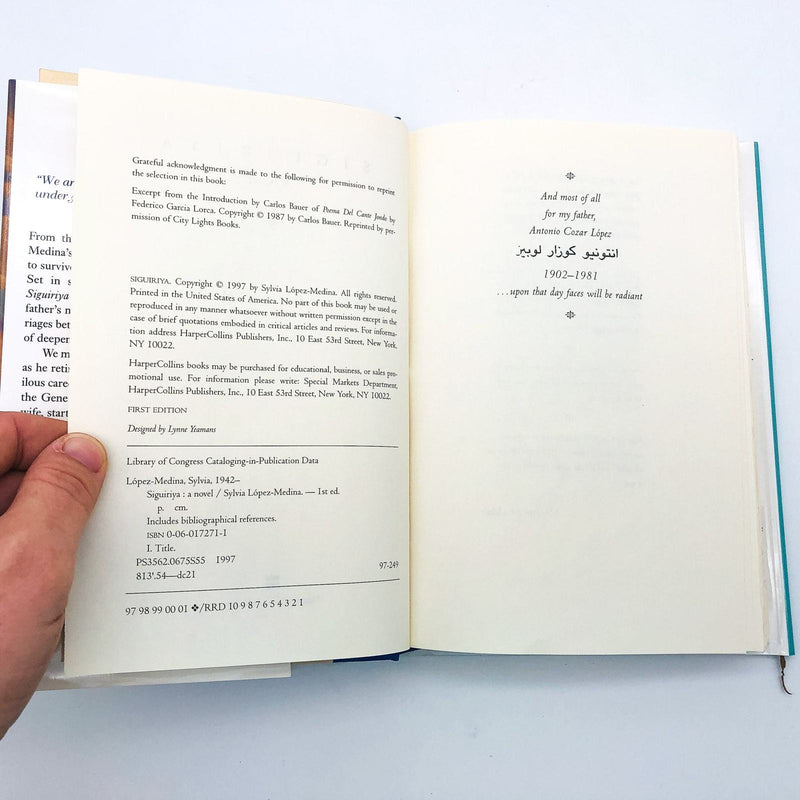 "We ar
under g
From th
Medina's
to surviv
Set in s
Siguiriya
father's n
riages bet
of deeper
We m
as he retir
ilous caree
the Gener
wife, start
Grateful acknowledgment is made to the following for permission to reprint
the selection in this book:
Excerpt from the Introduction by Carlos Bauer of Poema Del Cante Jondo by
Federico Garcia Lorca. Copyright © 1987 by Carlos Bauer. Reprinted by per-
mission of City Lights Books.
SIGUIRIYA. Copyright © 1997 by Sylvia López-Medina. All rights reserved.
Printed in the United States of America. No part of this book may be used or
reproduced in any manner whatsoever without written permission except in the
case of brief quotations embodied in critical articles and reviews. For informa-
tion address HarperCollins Publishers, Inc., 10 East 53rd Street, New York,
NY 10022.
HarperCollins books may be purchased for educational, business, or sales pro-
motional use. For information please write: Special Markets Department,
HarperCollins Publishers, Inc., 10 East 53rd Street, New York, NY 10022.
FIRST EDITION
Designed by Lynne Yeamans
Library of Congress Cataloging-in-Publication Data
López-Medina, Sylvia, 1942–
Siguiriya : a novel / Sylvia López-Medina. — 1st ed.
p. cm.
Includes bibliographical references.
ISBN 0-06-017271-1
I. Title.
PS3562.0675S55 1997
813'.54—dc21 97-249
97 98 99 00 01 ❖/RRD 10 9 8 7 6 5 4 3 2 1
And most of all
for my father,
Antonio Cozar López
انتونيو كوزار لوبيز
1902–1981
. . . upon that day faces will be radiant